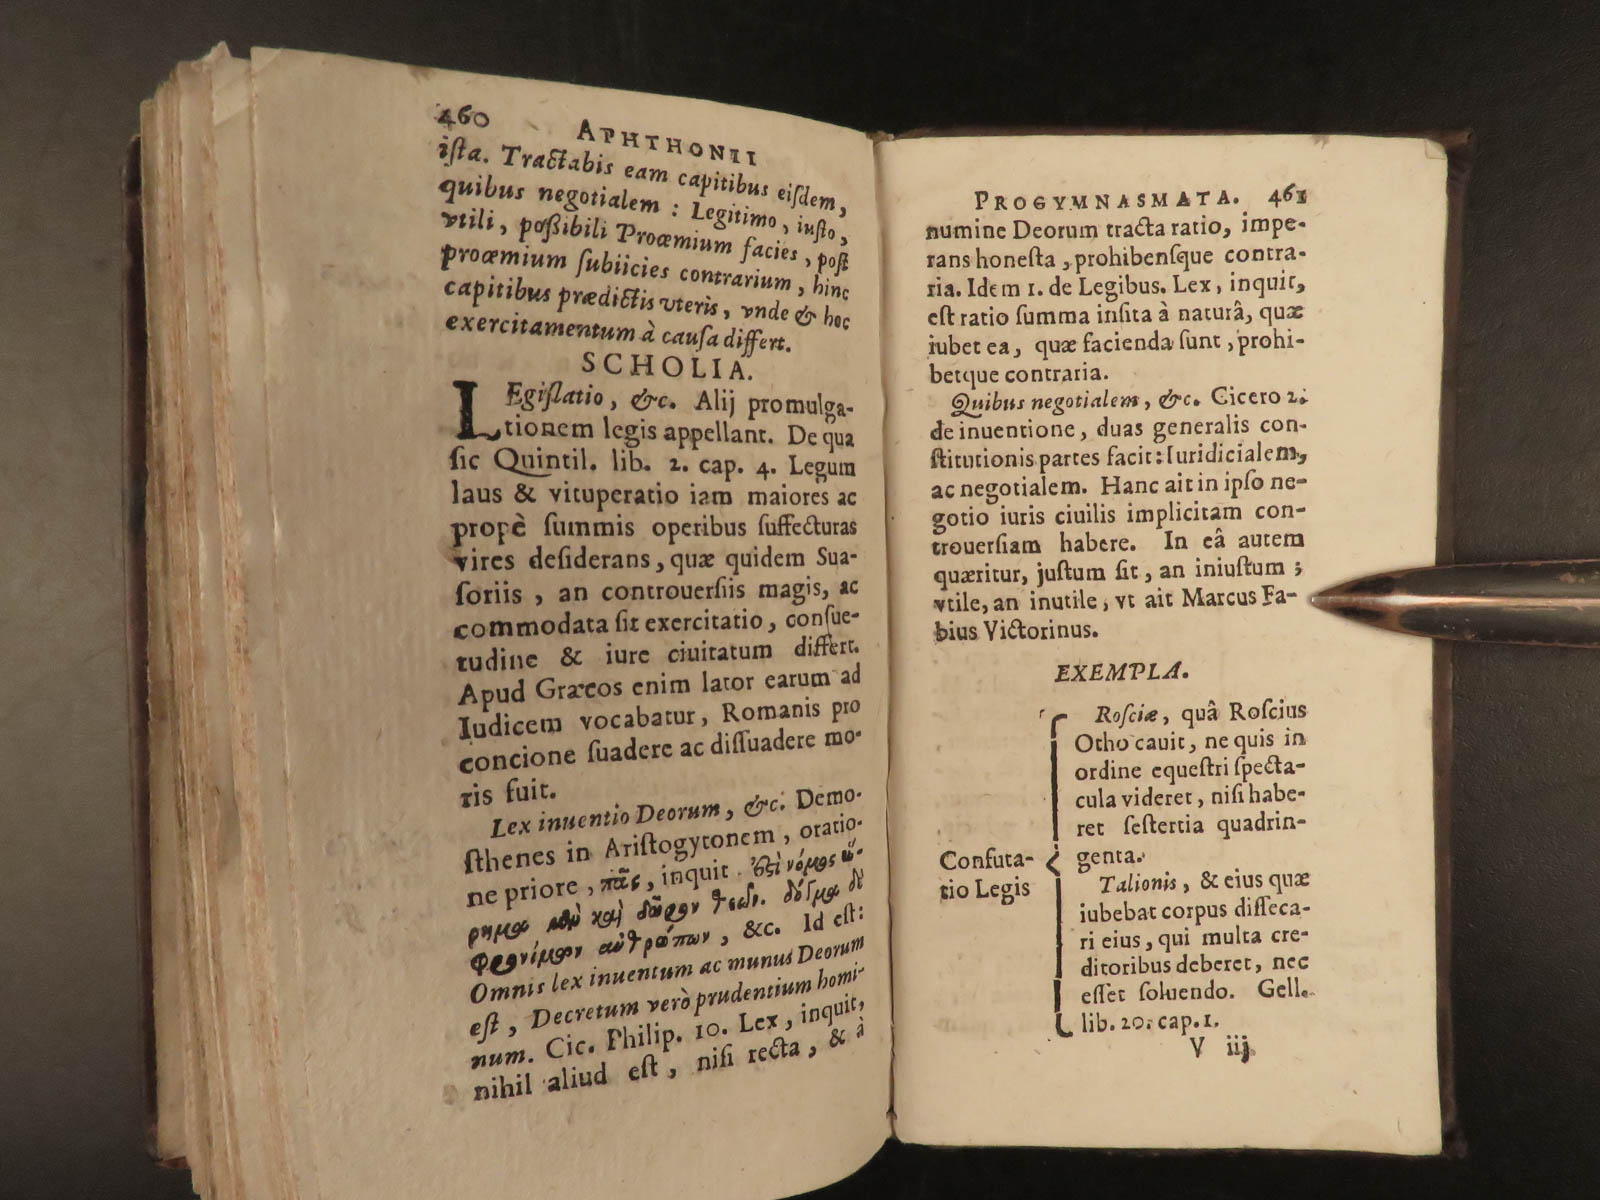 460 APHTHONII
iſta. Tractabis eam capitibus eiſdem,
quibus negotialem : Legitimo, iuſto,
vtili, poſsibili Proœmium facies, poſt
proœmium ſubiicies contrarium, hinc
capitibus prædictis vteris, vnde & hoc
exercitamentum à cauſa differt.
SCHOLIA.
LEgiſlatio, &c. Alij promulga-
tionem legis appellant. De qua
ſic Quintil. lib. 2. cap. 4. Legum
laus & vituperatio iam maiores ac
propè ſummis operibus ſuffecturas
vires deſiderans, quæ quidem Sua-
ſoriis, an controuerſiis magis, ac
commodata ſit exercitatio, conſue-
tudine & iure ciuitatum differt.
Apud Græcos enim lator earum ad
Iudicem vocabatur, Romanis pro
concione ſuadere ac diſſuadere mo-
ris fuit.
Lex inuentio Deorum, &c. Demo-
ſthenes in Ariſtogytonem, oratio-
ne priore, πᾶς, inquit ἐςὶ νόμος εὕ-
ρημα μὲν καὶ δῶρον θεῶν. δόγμα δὲ
φρονίμων ἀνθρώπων, &c. Id eſt:
Omnis lex inuentum ac munus Deorum
eſt, Decretum verò prudentium homi-
num. Cic. Philip. 10. Lex, inquit,
nihil aliud eſt, niſi recta, & à
PROGYMNASMATA. 461
numine Deorum tracta ratio, impe-
rans honeſta, prohibenſque contra-
ria. Idem 1. de Legibus. Lex, inquit,
eſt ratio ſumma inſita à naturâ, quæ
iubet ea, quæ facienda ſunt, prohi-
betque contraria.
Quibus negotialem, &c. Cicero 2.
de inuentione, duas generalis con-
ſtitutionis partes facit: Iuridicialem,
ac negotialem. Hanc ait in ipſo ne-
gotio iuris ciuilis implicitam con-
trouerſiam habere. In eâ autem
quæritur, juſtum ſit, an iniuſtum;
vtile, an inutile, vt ait Marcus Fa-
bius Victorinus.
EXEMPLA.
Confuta-
tio Legis
Roſciæ, quâ Roſcius
Otho cauit, ne quis in
ordine equeſtri ſpecta-
cula videret, niſi habe-
ret ſeſtertia quadrin-
genta.
Talionis, & eius quæ
iubebat corpus diſſeca-
ri eius, qui multa cre-
ditoribus deberet, nec
eſſet ſoluendo. Gell.
lib. 20. cap. 1.
V iij